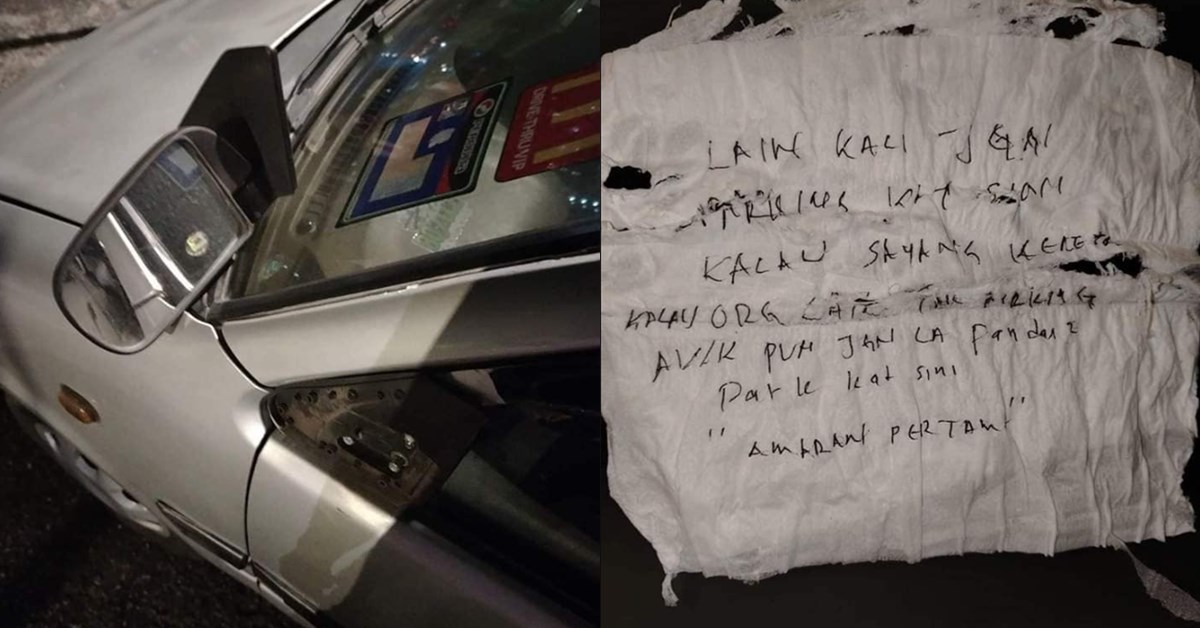 DRIVE-THRU VIP
LAIN KALI JGN
PARKING KAT SINI
KALAU SAYANG KERETA
KALAU ORG LAIN TAK PARKING
AWK PUN JGN LA Pandai2
Park kat sini
"AMARAN PERTAMA"